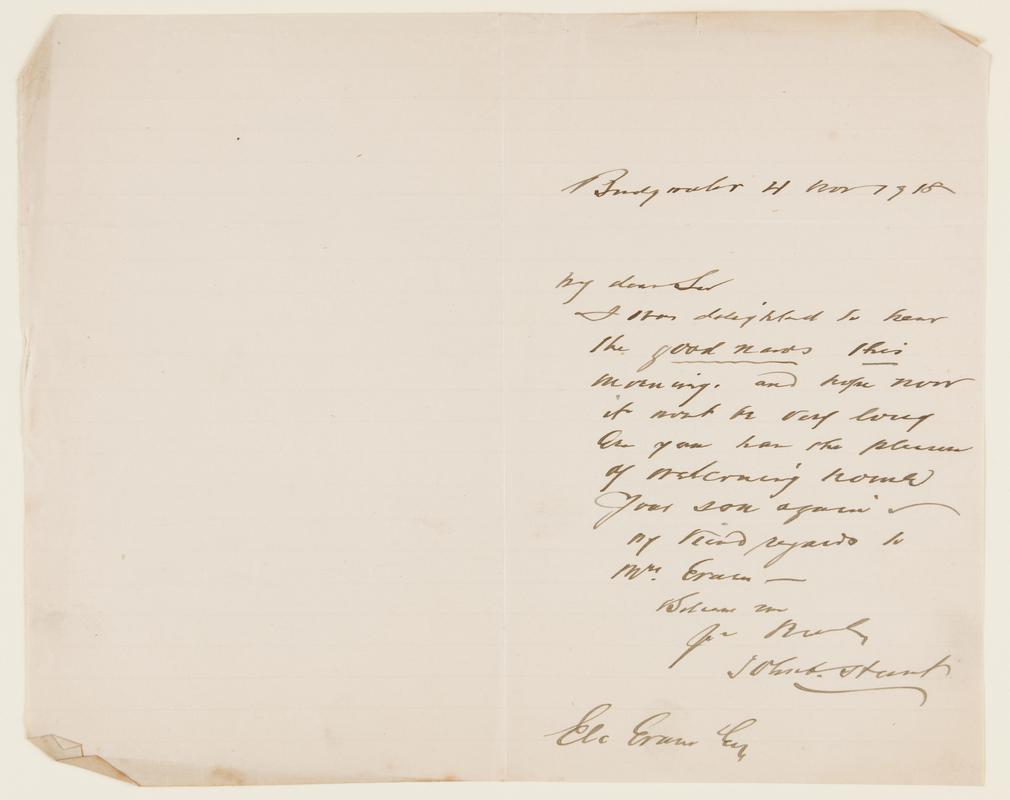 Bridgwater 4 Nov 1918
My dear Sir
I was delighted to hear
the good news this
morning. and hope now
it wont be very long
Ere you have the pleasure
of welcoming home
Your son again
my kind regards to
Mrs. Evans —
Believe me
Yrs Truly
John
Evans Esq